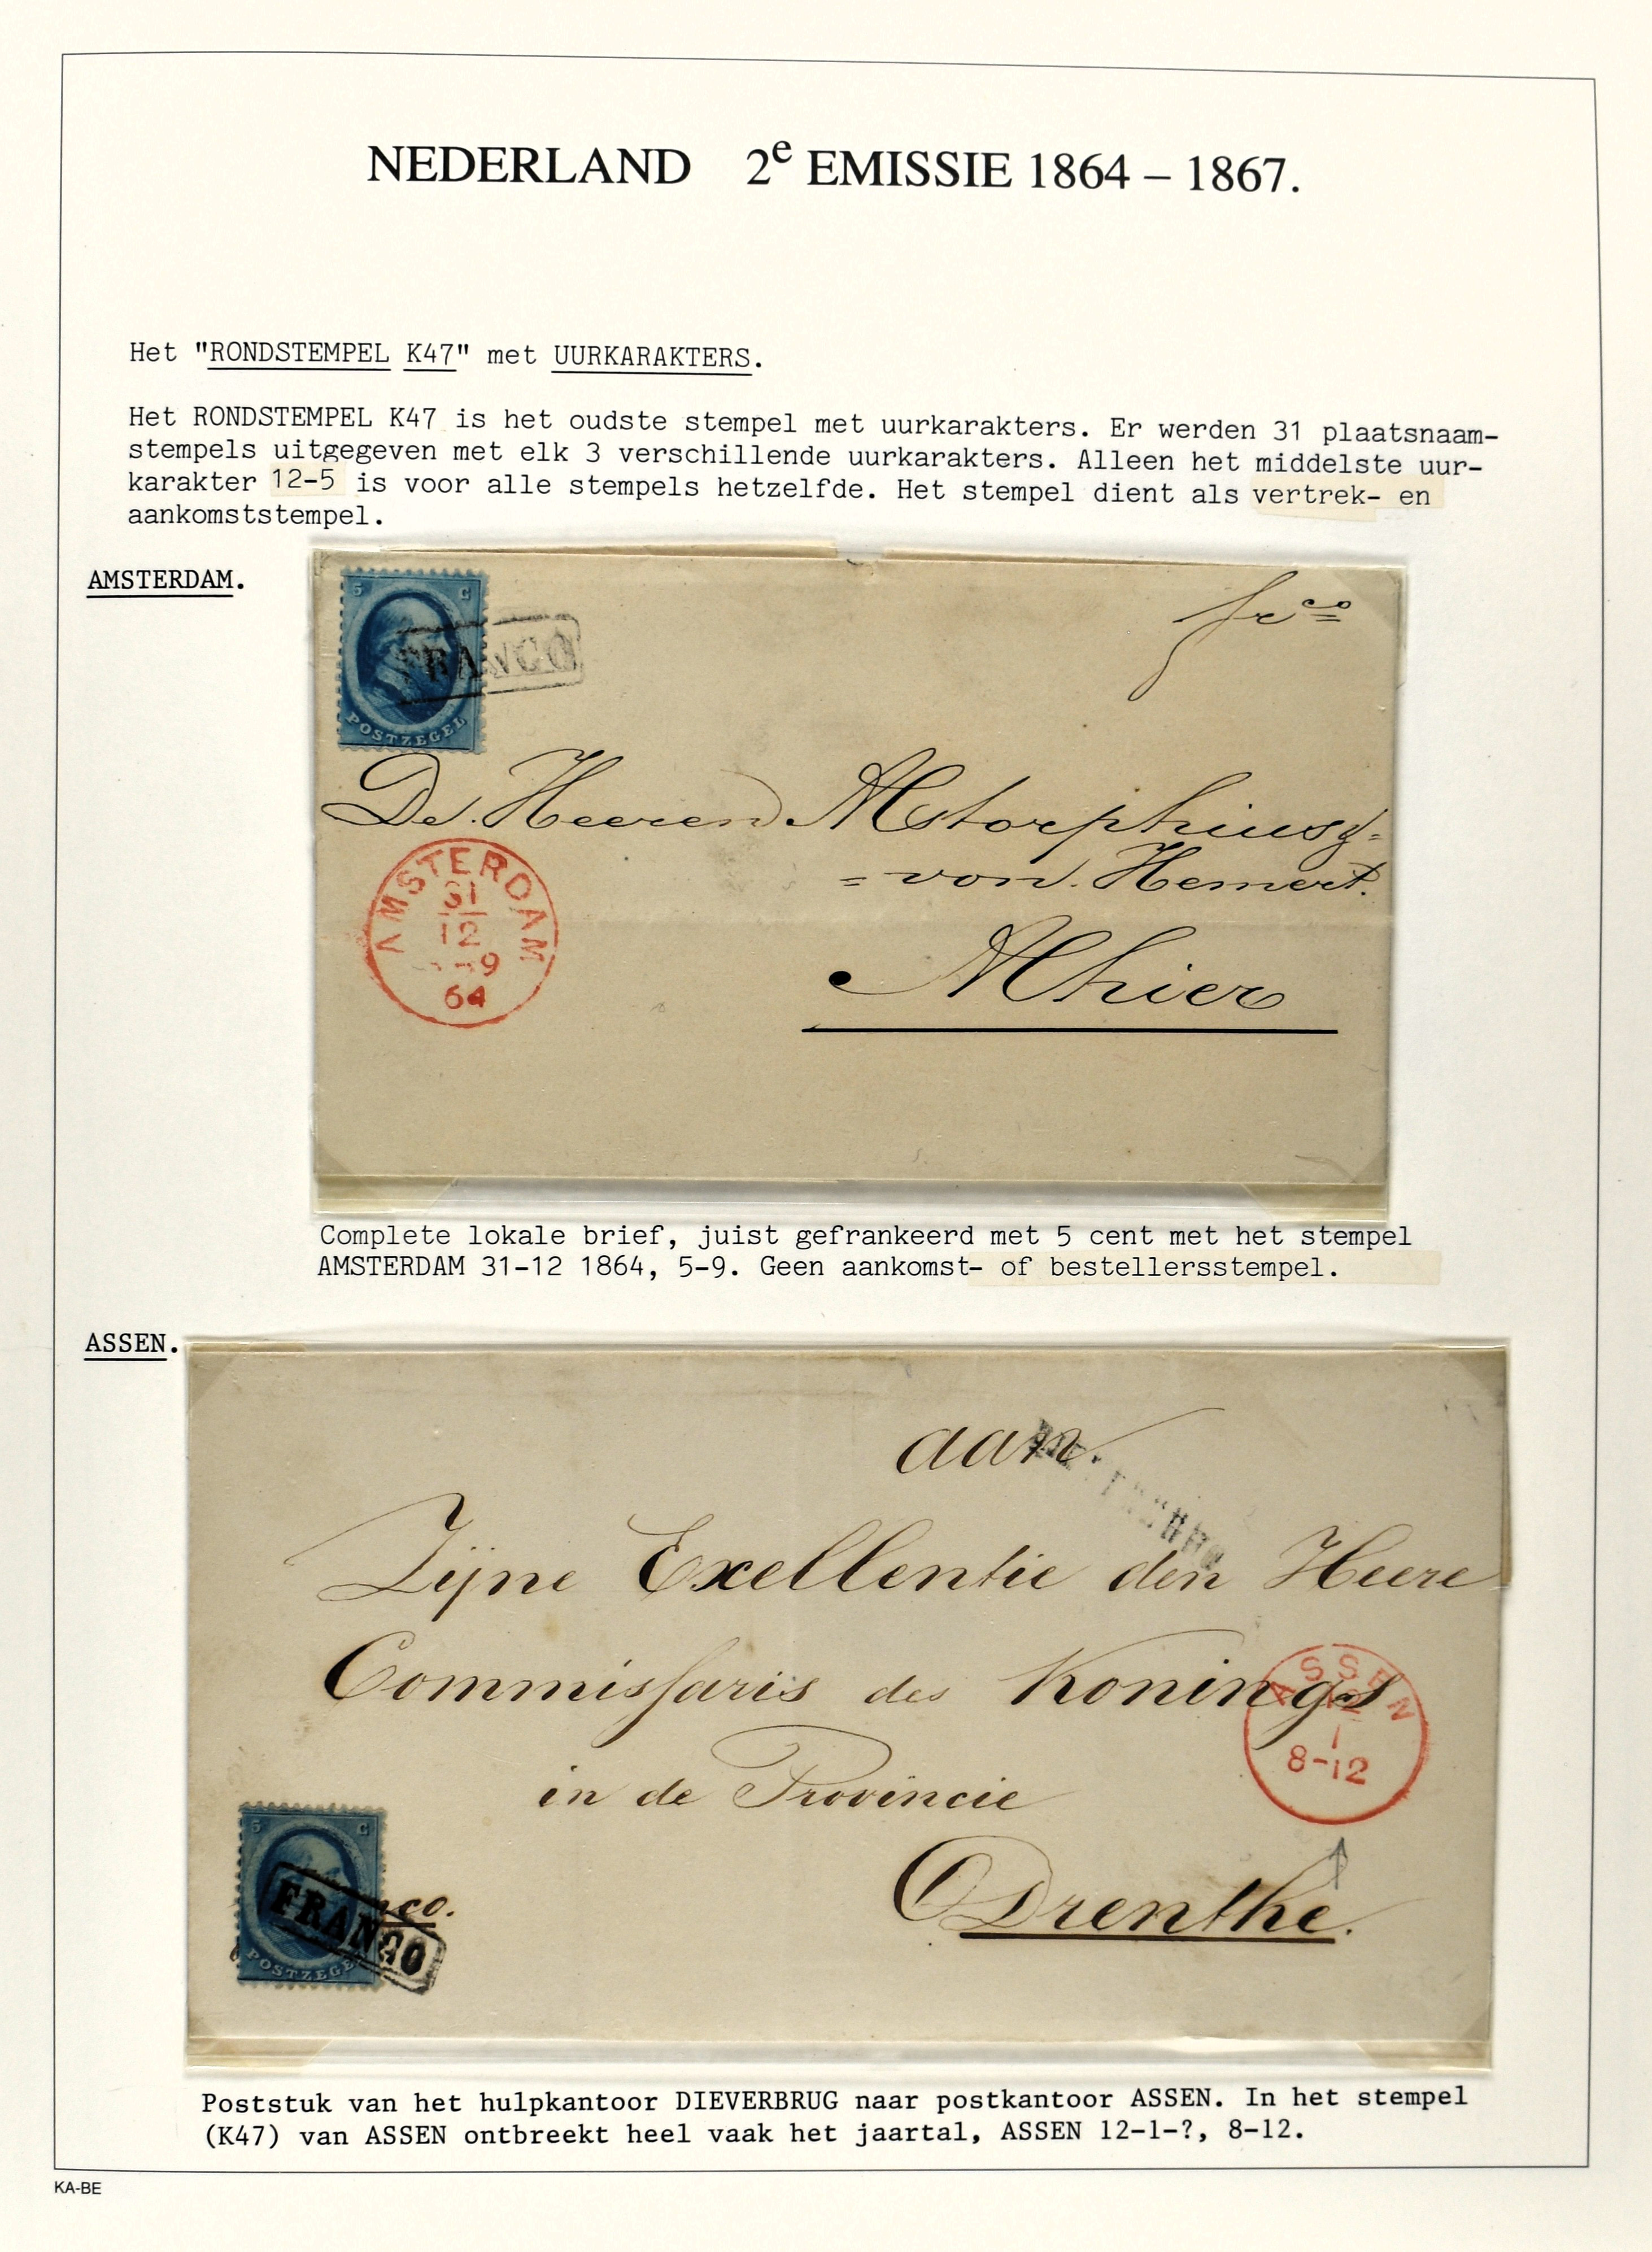 NEDERLAND 2e EMISSIE 1864 – 1867.
Het "RONDSTEMPEL K47" met UURKARAKTERS.
Het RONDSTEMPEL K47 is het oudste stempel met uurkarakters. Er werden 31 plaatsnaam-
stempels uitgegeven met elk 3 verschillende uurkarakters. Alleen het middelste uur-
karakter 12-5 is voor alle stempels hetzelfde. Het stempel dient als vertrek- en
aankomststempel.
AMSTERDAM.
5 C
POSTZEGEL
FRANCO
frco
De Heeren
von Hemert.
Alhier
AMSTERDAM
31
12
-9
64
Complete lokale brief, juist gefrankeerd met 5 cent met het stempel
AMSTERDAM 31-12 1864, 5-9. Geen aankomst- of bestellersstempel.
ASSEN.
aan
Zijne Exellentie den Heere
Commissaris des Konings
in de Provincie
Drenthe.
ASSEN
12
1
8-12
5 C
POSTZEGE
FRANCO
co.
Poststuk van het hulpkantoor DIEVERBRUG naar postkantoor ASSEN. In het stempel
(K47) van ASSEN ontbreekt heel vaak het jaartal, ASSEN 12-1-?, 8-12.
KA-BE